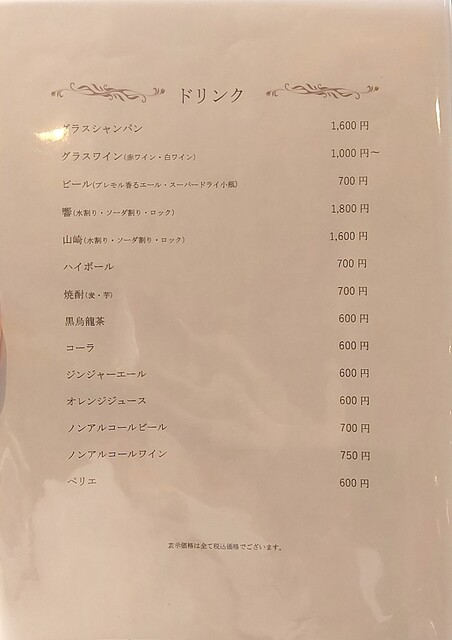 ドリンク
グラスシャンパン 1,600 円
グラスワイン(赤ワイン・白ワイン) 1,000 円～
ビール(プレモル香るエール・スーパードライ小瓶) 700 円
響(水割り・ソーダ割り・ロック) 1,800 円
山崎(水割り・ソーダ割り・ロック) 1,600 円
ハイボール 700 円
焼酎(麦・芋) 700 円
黒烏龍茶 600 円
コーラ 600 円
ジンジャーエール 600 円
オレンジジュース 600 円
ノンアルコールビール 700 円
ノンアルコールワイン 750 円
ペリエ 600 円
表示価格は全て税込価格でございます。